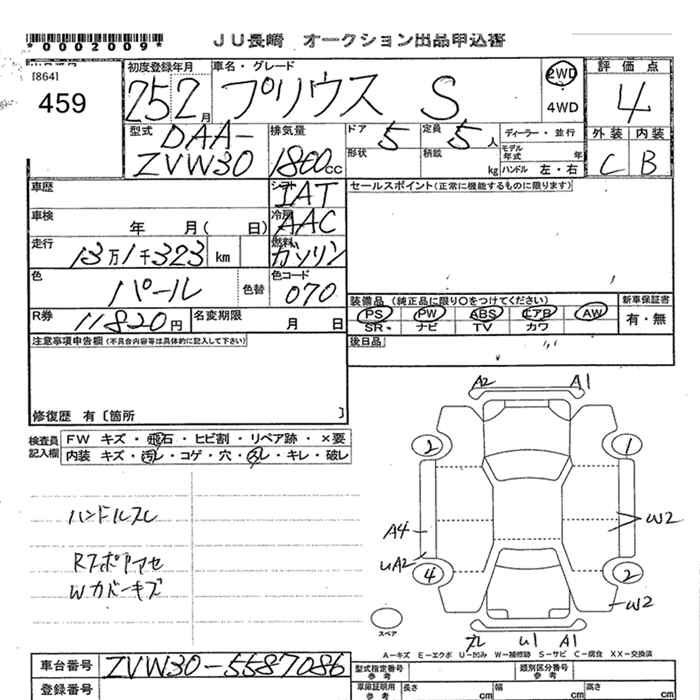 *0002009*
JU長崎 オークション出品申込書
[864]
459
初度登録年月
25 2月
車名・グレード
プリウス S
2WD
4WD
評価点
4
型式
DAA-
ZVW30
排気量
1800cc
ドア
5
定員
5人
形状
積載
kg
ディーラー・並行
モデル年式 年
ハンドル 左・右
外装 内装
C B
車歴
シフト
IAT
セールスポイント(正常に機能するものに限ります)
車検
年 月( 日)
冷房
AAC
走行
13万1千323 km
燃料
ガソリン
色
パール
色替
色コード
070
装備品(純正品に限り○をつけてください)
新車保証書
PS PW ABS エアB AW
有・無
SR・ ナビ TV カワ
R券
11820円
名変期限
月 日
注意事項申告欄(不具合内容等は具体的に記入して下さい)
後日品
修復歴 有〔箇所 〕
検査員記入欄
FW キズ・飛石・ヒビ割・リペア跡・×要
内装 キズ・汚レ・コゲ・穴・スレ・キレ・破レ
ハンドルスレ
Wカバーキズ
A2 A1
2 1
A4
W2
UA2
4 2
W2
スペア
U1 A1
A−キズ E−エクボ U−凹み W−補修跡 S−サビ C−腐食 XX−交換済
車台番号
ZVW30-5587086
登録番号
型式指定番号
参考
類別区分番号
参考
車庫証明用
参考
長さ cm
幅 cm
高さ cm